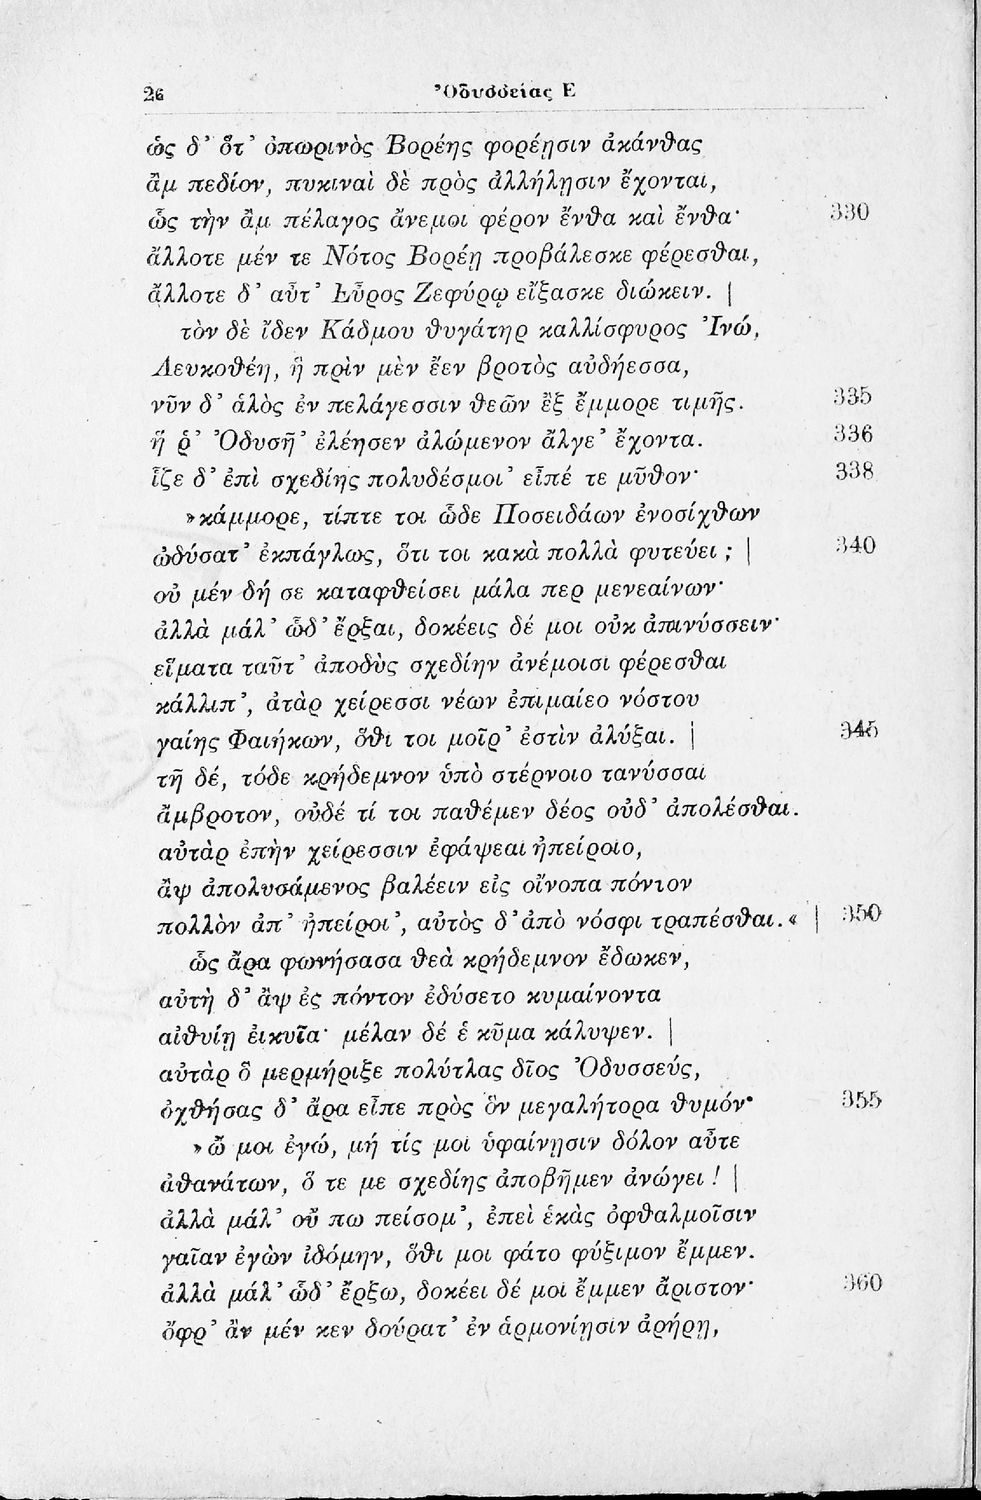 26
Ὀδυσσείας Ε
ὡς δ’ ὅτ’ ὀπωρινὸς Βορέης φορέῃσιν ἀκάνθας
ἂμ πεδίον, πυκιναὶ δὲ πρὸς ἀλλήλῃσιν ἔχονται,
ὣς τὴν ἂμ πέλαγος ἄνεμοι φέρον ἔνθα καὶ ἔνθα· 330
ἄλλοτε μέν τε Νότος Βορέῃ προβάλεσκε φέρεσθαι,
ἄλλοτε δ’ αὖτ’ Εὖρος Ζεφύρῳ εἴξασκε διώκειν. |
τὸν δὲ ἴδεν Κάδμου θυγάτηρ καλλίσφυρος Ἰνώ,
Λευκοθέη, ἣ πρὶν μὲν ἔεν βροτὸς αὐδήεσσα,
νῦν δ’ ἁλὸς ἐν πελάγεσσιν θεῶν ἒξ ἔμμορε τιμῆς. 335
ἥ ῥ’ Ὀδυσῆ’ ἐλέησεν ἀλώμενον ἄλγε’ ἔχοντα. 336
ἷζε δ’ ἐπὶ σχεδίης πολυδέσμοι’ εἶπέ τε μῦθον· 338
»κάμμορε, τίπτε τοι ὧδε Ποσειδάων ἐνοσίχθων
ὠδύσατ’ ἐκπάγλως, ὅτι τοι κακὰ πολλὰ φυτεύει ; | 340
οὐ μέν δή σε καταφθείσει μάλα περ μενεαίνων·
ἀλλὰ μάλ’ ὧδ’ ἔρξαι, δοκέεις δέ μοι οὐκ ἀπινύσσειν·
εἵματα ταῦτ’ ἀποδὺς σχεδίην ἀνέμοισι φέρεσθαι
κάλλιπ’, ἀτὰρ χείρεσσι νέων ἐπιμαίεο νόστου
γαίης Φαιήκων, ὅθι τοι μοῖρ’ ἐστὶν ἀλύξαι. | 345
τῆ δέ, τόδε κρήδεμνον ὑπὸ στέρνοιο τανύσσαι
ἄμβροτον, οὐδέ τί τοι παθέμεν δέος οὐδ’ ἀπολέσθαι.
αὐτὰρ ἐπὴν χείρεσσιν ἐφάψεαι ἠπείροιο,
ἂψ ἀπολυσάμενος βαλέειν εἰς οἴνοπα πόντον
πολλὸν ἀπ’ ἠπείροι’, αὐτὸς δ’ ἀπὸ νόσφι τραπέσθαι.« | 350
ὣς ἄρα φωνήσασα θεὰ κρήδεμνον ἔδωκεν,
αὐτὴ δ’ ἂψ ἐς πόντον ἐδύσετο κυμαίνοντα
αἰθυίῃ ἐικυῖα· μέλαν δέ ἑ κῦμα κάλυψεν. |
αὐτὰρ ὃ μερμήριξε πολύτλας δῖος Ὀδυσσεύς,
ὀχθήσας δ’ ἄρα εἶπε πρὸς ὃν μεγαλήτορα θυμόν· 355
»ὤ μοι ἐγώ, μή τίς μοι ὑφαίνῃσιν δόλον αὖτε
ἀθανάτων, ὅ τε με σχεδίης ἀποβῆμεν ἀνώγει ! |
ἀλλὰ μάλ’ οὔ πω πείσομ’, ἐπεὶ ἑκὰς ὀφθαλμοῖσιν
γαῖαν ἐγὼν ἰδόμην, ὅθι μοι φάτο φύξιμον ἔμμεν.
ἀλλὰ μάλ’ ὧδ’ ἔρξω, δοκέει δέ μοι ἔμμεν ἄριστον· 360
ὄφρ’ ἂν μέν κεν δούρατ’ ἐν ἁρμονίῃσιν ἀρήρῃ,